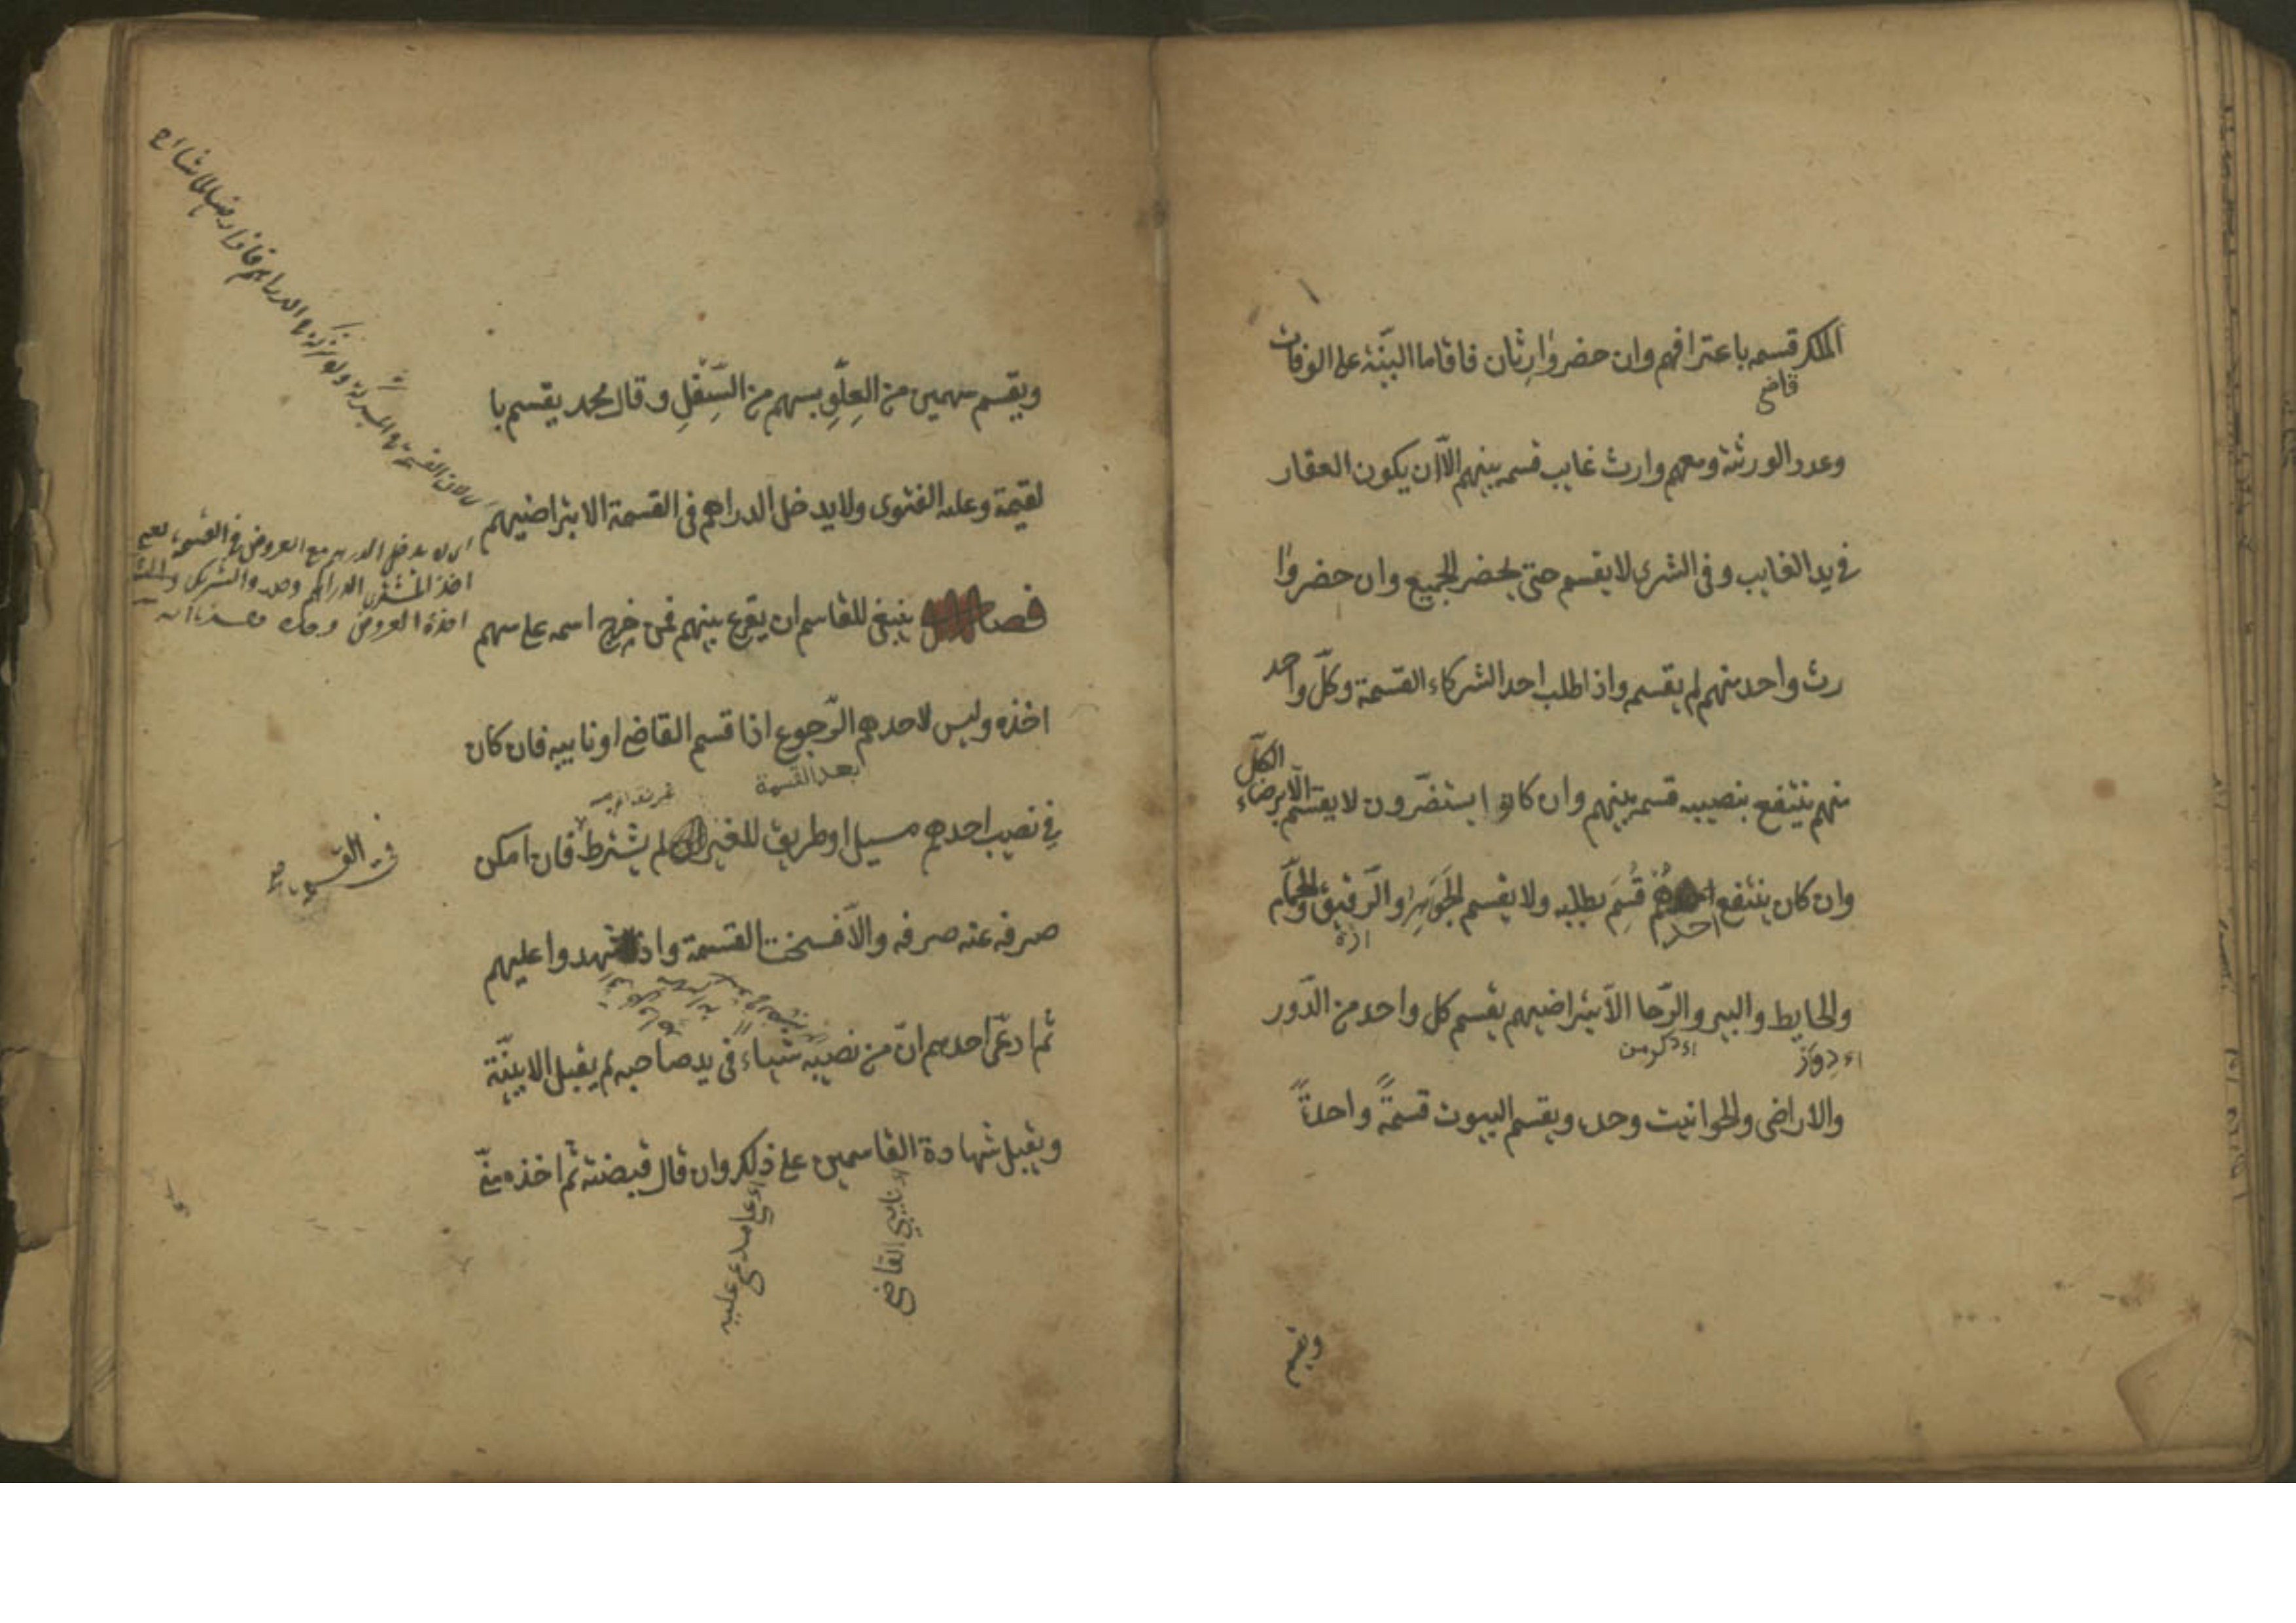 الملك قسمه باعترافهم وان حضر وٰارِثان فاقاما البيّنة على الوفات
قاضى
وعدد الورثة ومعهم وارث غايب قسم بينهم الّا ان يكون العقار
فى يد الغايب وفى الشرى لا يقسم حتى يحضر الجميع وان حضر وٰا
رث واحد منهم لم يقسم واذا طلب احد الشركاء القسمة وكلّ واحد
منهم ينتفع بنصيبه قسم بينهم وان كانوا يستضرّون لا يقسّم الّا برضاء
الكلّ
وان كان ينتفع احدهم قُسِمَ بطلبه ولا يقسم الجَوَاهِرُ والرّقيق والحمّام
احدهم
والحايط والبير والرّحا الّا بتراضيهم يقسم كل واحد من الدّور
والاراضى والحوانيت وحده ويقسم البيوت قسمةً واحدةً
ويقسم
ويقسم سهمين من العِلّوِ بسهم من السِّفْلِ وقال محمد يقسم با
لقيمة وعليه الفتوى ولا يدخل الدراهم فى القسمة الا بتراضيهم
فصل ينبغى للقاسم ان يقرع بينهم فمن خرج اسمه على سهم
اخذه وليس لاحدهم الرّجوع اذا قسم القاضى او نايبه فان كان
بعد القسمة
فى نصيب احدهم مسيل او طريق للغير لم يشترط فان امكن
صرفه عنه صرفه والّا فسخت القسمة واذا شهدوا عليهم
ثم ادعّى احدهم انّ من نصيبه شياء فى يد صاحبه لم يقبل الا ببيّنة
ويقبل شهادة القاسمين على ذلك وان قال قبضته ثم اخذه منّى
نايبى القاضى
على مدعى عليه